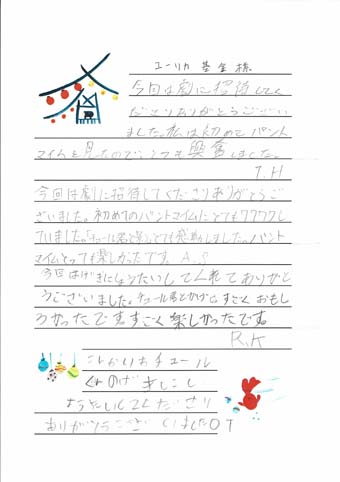 ユーリカ 基金 様
今回は劇に招待してく
ださりありがとうござい
ました。私は初めてパント
マイムを見たのでとても興奮しました。
T.H
今回は劇に招待してくださりありがとうご
ざいました。初めてのパントマイムにとてもワクワクし
ていました。「チュール君と影」とても感動しました。パント
マイムとっても楽しかったです A.S
今回はげきにしょうたいしてくれてありがと
うございました。チュール君とかげはすごくおもし
ろかったです。すごく楽しかったです。
R.K
チュール
くんのげき
しょうたいしてくださり
ありがとうございました O T